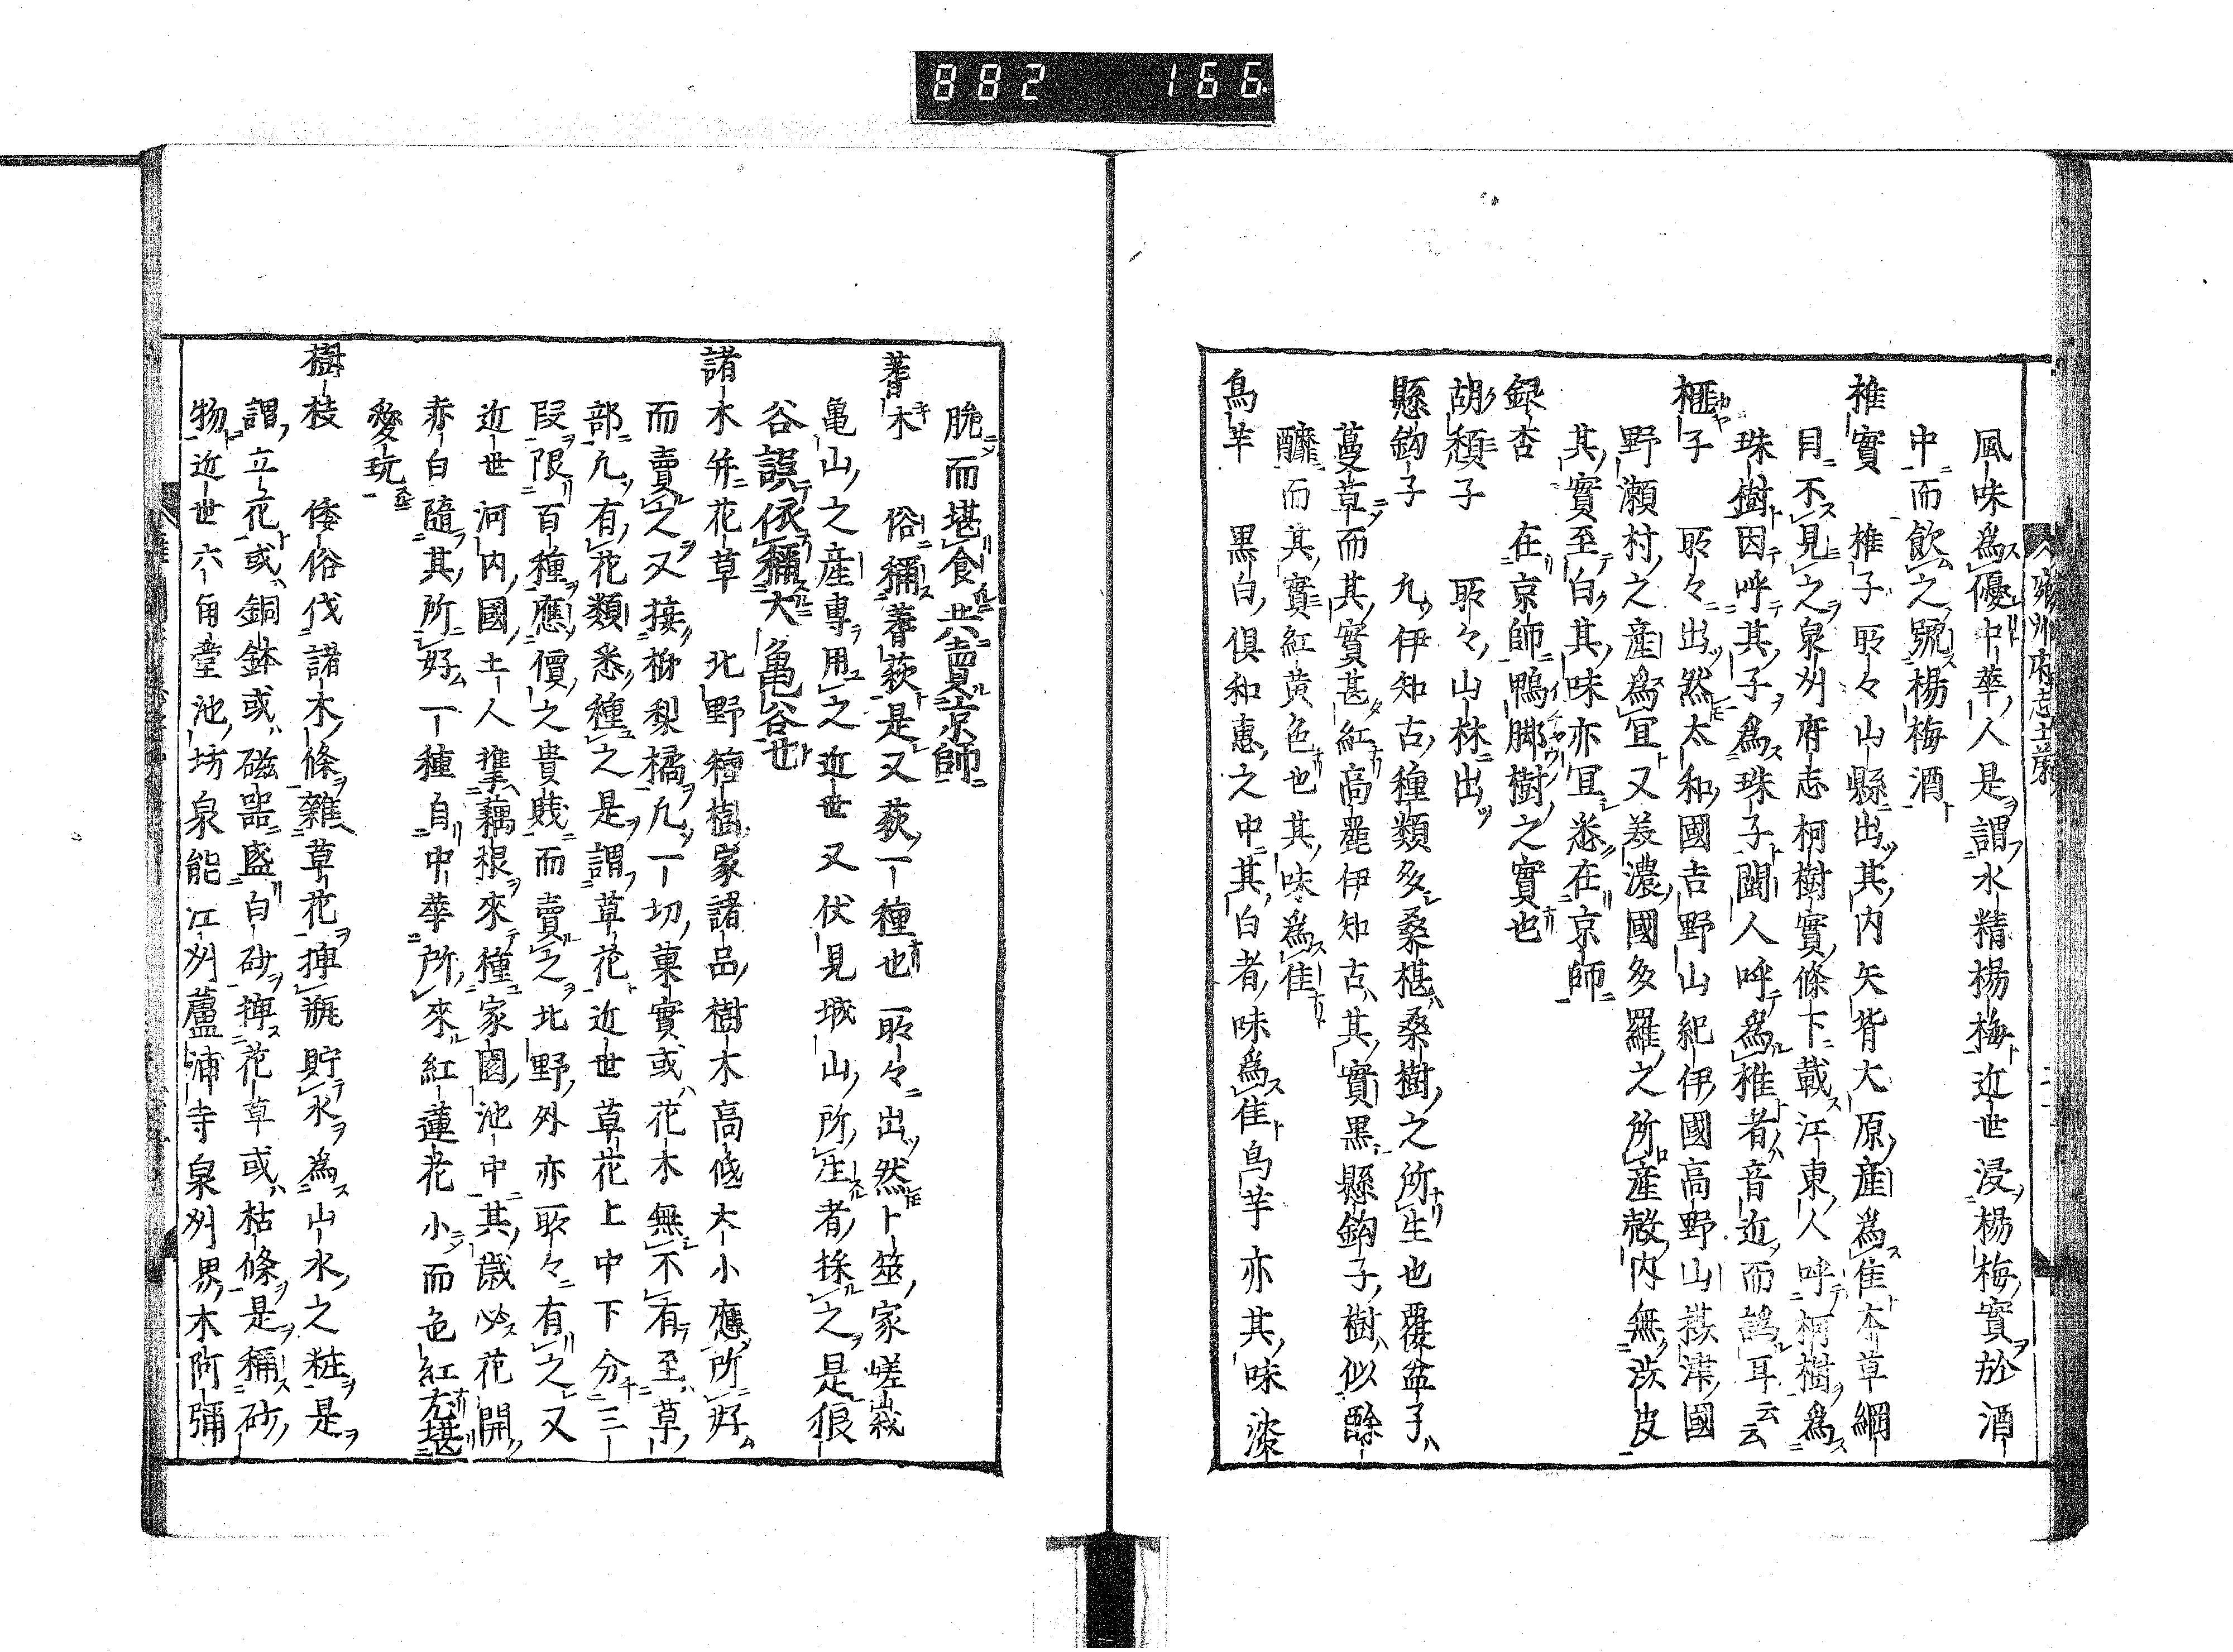 882 166
風味為優中華人是謂水精楊梅近世浸楊梅實於酒
中而飲之號楊梅酒
椎實 椎子取々山縣出其内矢背大原產為佳本草綱
目不見之泉刕府志柯樹實條下載江東人呼柯樹為
珠樹因呼其子為珠子閩人呼為椎者音近而訛耳云云
榧子 取々出然太和國吉野山紀伊國高野山攝津國
野瀬村之產為冝又美濃國多羅之所產殼内無澁皮
其實至白其味亦冝悉在京師
銀杏 在京師鴨脚樹之實也
胡頽子 取々山林出
懸鈎子 凢伊知古種類多桑椹桑樹之所生也覆盆子
蔓草而其實甚紅高麗伊知古其實黒懸鈎子樹似酴
醿而其實紅黄色也其味為佳
烏芋 黒白倶和惠之中其白者味為佳烏芋亦其味淡
脆而堪食共賣京師
蓍木 俗稱蓍萩是又萩一種也取々出然卜筮家嵯峩
亀山之產專用之近世又伏見城山所生者採之是狼
谷誤依稱大亀谷也
諸木并花草 北野種樹家諸品樹木高低大小應所好
而賣之又接柳梨橘凢一切菓實或花木無不有至草
部凢有花類悉種之是謂草花近世草花上中下分三
段限百種應價之貴賎而賣之北野外亦取々有之又
近世河内國土人擕藕根來種家園池中其歳必花開
赤白隨其所好一種自中華所來紅蓮花小而色紅尤堪
愛玩
樹枝 倭俗伐諸木條雜草花挿瓶貯水為山水之粧是
謂立花或銅鉢或磁噐盛白砂挿花草或枯條是稱砂
物近世六角堂池坊泉能江刕蘆浦寺泉刕界木阿彌